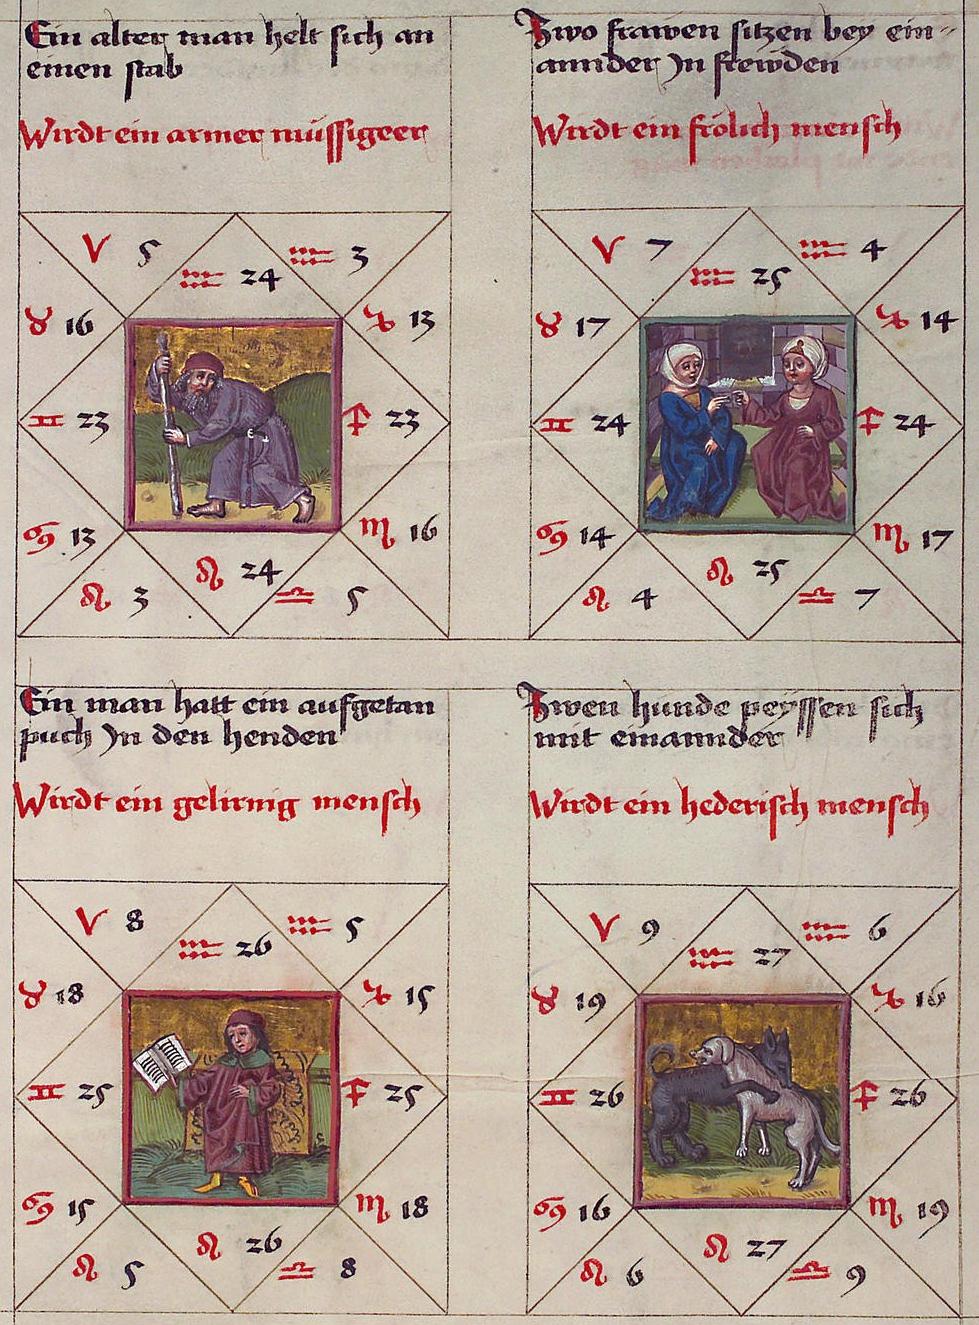 Ein alter man helt sich an
einen stab
Wirdt ein armer müssigeer
♈ 5 ♒ 3
♒ 24
♉ 16 ♑ 13
♊ 23 ♐ 23
♋ 13 ♏ 16
♌ 24
♌ 3 ♎ 5
Zwo frawen sitzen bey ein-
annder Jn frewden
Wirdt ein frölich mensch
♈ 7 ♒ 4
♒ 25
♉ 17 ♑ 14
♊ 24 ♐ 24
♋ 14 ♏ 17
♌ 25
♌ 4 ♎ 7
Ein man hatt ein aufgetan
puch Jn den henden
Wirdt ein gelirnig mensch
♈ 8 ♒ 5
♒ 26
♉ 18 ♑ 15
♊ 25 ♐ 25
♋ 15 ♏ 18
♌ 26
♌ 5 ♎ 8
Zwen hunde peyssen sich
mit einannder
Wirdt ein hederisch mensch
♈ 9 ♒ 6
♒ 27
♉ 19 ♑ 16
♊ 26 ♐ 26
♋ 16 ♏ 19
♌ 27
♌ 6 ♎ 9